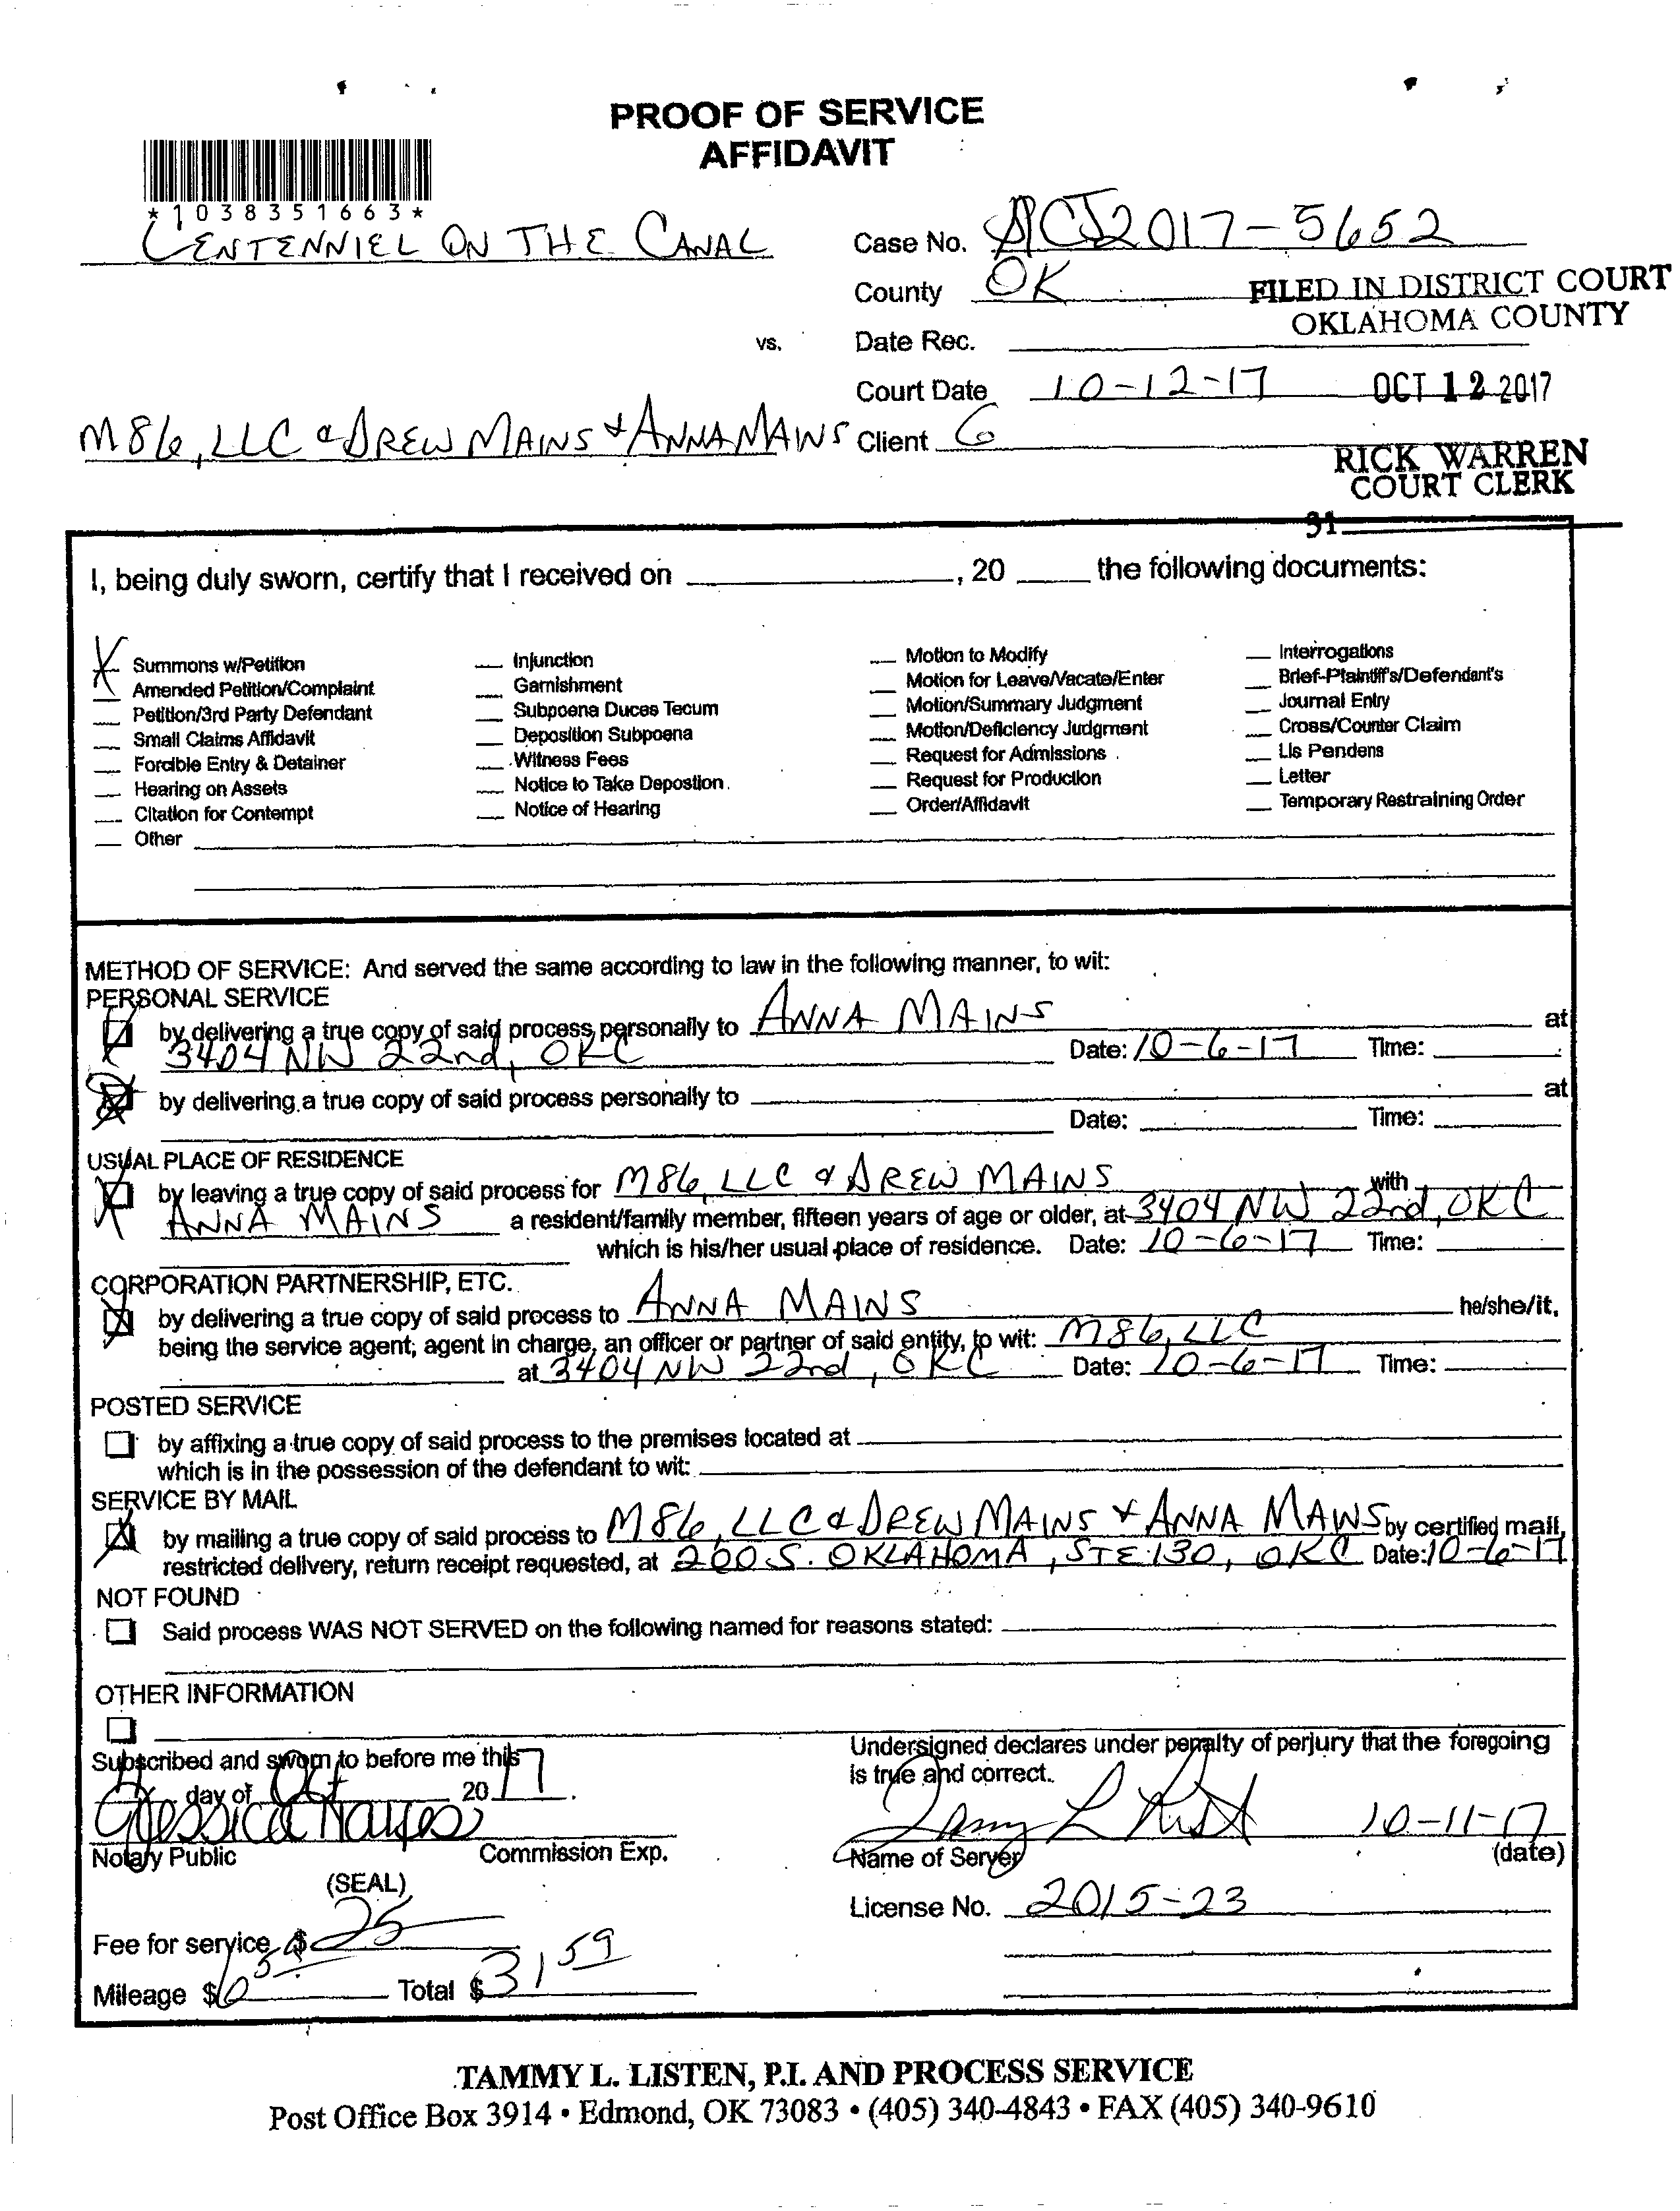 PROOF OF SERVICE
AFFIDAVIT
*1038351663*
CENTENNIEL ON THE CANAL
Case No. CJ2017-5652
County OK
FILED IN DISTRICT COURT
OKLAHOMA COUNTY
vs.
Date Rec.
Court Date 10-12-17
OCT 12 2017
M86, LLC & DREW MAINS & ANNA MAINS
Client G
RICK WARREN
COURT CLERK
31
I, being duly sworn, certify that I received on ______, 20 ____ the following documents:
X Summons w/Petition
__ Amended Petition/Complaint
__ Petition/3rd Party Defendant
__ Small Claims Affidavit
__ Forcible Entry & Detainer
__ Hearing on Assets
__ Citation for Contempt
__ Other
__ Injunction
__ Garnishment
__ Subpoena Duces Tecum
__ Deposition Subpoena
__ Witness Fees
__ Notice to Take Depostion
__ Notice of Hearing
__ Motion to Modify
__ Motion for Leave/Vacate/Enter
__ Motion/Summary Judgment
__ Motion/Deficiency Judgment
__ Request for Admissions
__ Request for Production
__ Order/Affidavit
__ Interrogations
__ Brief-Plaintiff's/Defendant's
__ Journal Entry
__ Cross/Counter Claim
__ Lis Pendens
__ Letter
__ Temporary Restraining Order
METHOD OF SERVICE: And served the same according to law in the following manner, to wit:
PERSONAL SERVICE
by delivering a true copy of said process personally to ANNA MAINS at
3404 NW 22nd, OKC Date: 10-6-17 Time:
by delivering a true copy of said process personally to ______ at
Date: ______ Time:
USUAL PLACE OF RESIDENCE
by leaving a true copy of said process for M86, LLC & DREW MAINS with
ANNA MAINS a resident/family member, fifteen years of age or older, at 3404 NW 22nd, OKC
which is his/her usual place of residence. Date: 10-6-17 Time:
CORPORATION PARTNERSHIP, ETC.
by delivering a true copy of said process to ANNA MAINS he/she/it,
being the service agent; agent in charge, an officer or partner of said entity, to wit: M86, LLC
at 3404 NW 22nd, OKC Date: 10-6-17 Time:
POSTED SERVICE
by affixing a true copy of said process to the premises located at
which is in the possession of the defendant to wit:
SERVICE BY MAIL
by mailing a true copy of said process to M86, LLC & DREW MAINS & ANNA MAINS by certified mail,
restricted delivery, return receipt requested, at 200 S. OKLAHOMA, STE 130, OKC Date: 10-6-17
NOT FOUND
Said process WAS NOT SERVED on the following named for reasons stated:
OTHER INFORMATION
Subscribed and sworn to before me this
day of Oct 2017.
Jessica Hayes
Notary Public Commission Exp.
(SEAL)
Fee for service $ 25
Mileage $ 6 59 Total $ 31 59
Undersigned declares under penalty of perjury that the foregoing
is true and correct.
10-11-17
Name of Server (date)
License No. 2015-23
TAMMY L. LISTEN, P.I. AND PROCESS SERVICE
Post Office Box 3914 • Edmond, OK 73083 • (405) 340-4843 • FAX (405) 340-9610